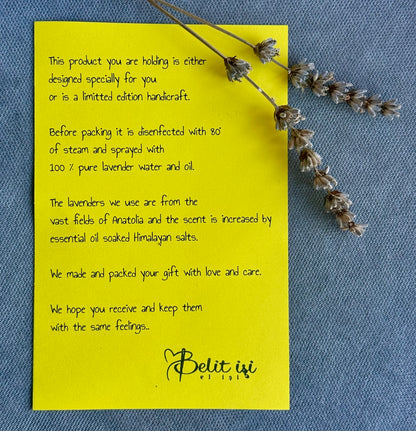 This product you are holding is either
designed specially for you
or is a limitted edition handicraft.
Before packing it is disenfected with 80°
of steam and sprayed with
100 % pure lavender water and oil.
The lavenders we use are from the
vast fields of Anatolia and the scent is increased by
essential oil soaked Himalayan salts.
We made and packed your gift with love and care.
We hope you receive and keep them
with the same feelings..
Belit işi
el işi